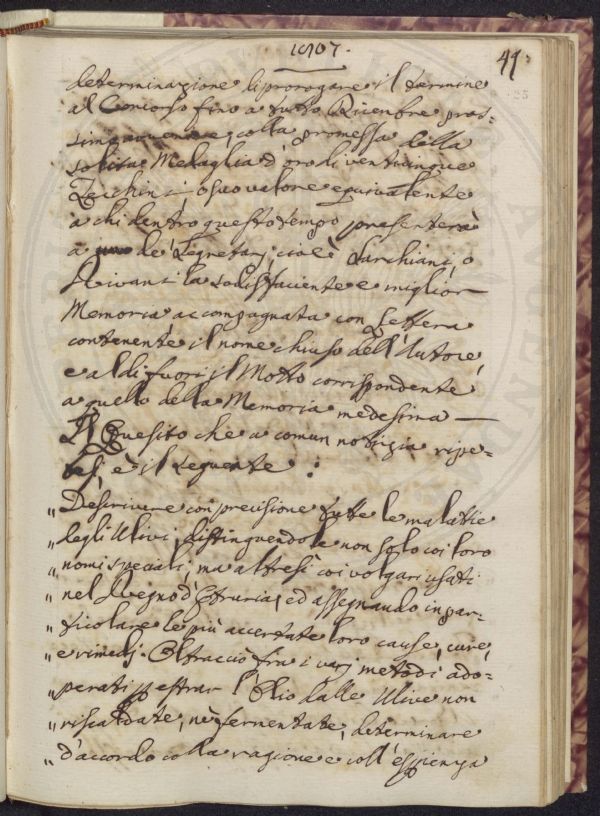 1807.
41.
determinazione di prorogare il termine
al Concorso fino a tutto Dicembre pros=
simo avvenire colla promessa della
solita Medaglia d'oro di venticinque
Zecchini, o suo valore equivalente
a chi dentro questo tempo presenterà
a uno de' Segretarj, cioè Sarchiani, o
Rivani la sodisfaciente e miglior
Memoria accompagnata con Lettera
contenente il nome chiuso dell'Autore,
e al di fuori il Motto corrispondente
a quello della Memoria medesima —
Il Quesito che a comun notizia ripe=
tesi, è il seguente :
„ Descrivere con precisione tutte le malattie
„ degli Ulivi, distinguendole non solo coi loro
„ nomi speciali, ma altresì coi volgari usati
„ nel Regno d'Etruria, ed assegnando in par=
„ ticolare le più accertate loro cause, cure,
„ e rimedj. Oltracciò fra i varj metodi ado=
„ perati p estrar l'Olio dalle Ulive non
„ riscaldate, nè fermentate, determinare
„ d'accordo colla ragione e coll'esperienza